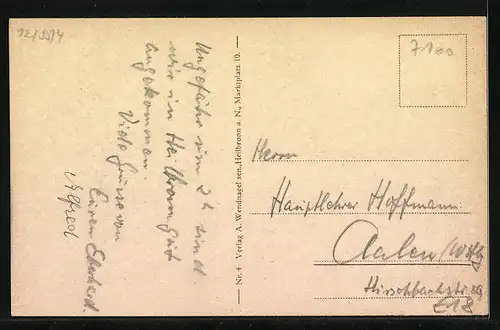 12/3314
7100
Ungefähr um 2 h sind
wir in Heilbronn gut
angekommen.
Viele Grüsse von
Euren Eberhard.
Alfred
Nr. 4 Verlag A. Wendnagel sen., Heilbronn a. N., Marktplatz 10.
Herrn
Hauptlehrer Hoffmann
Aalen/Wttbg
Hirschbachstr. 29
E18